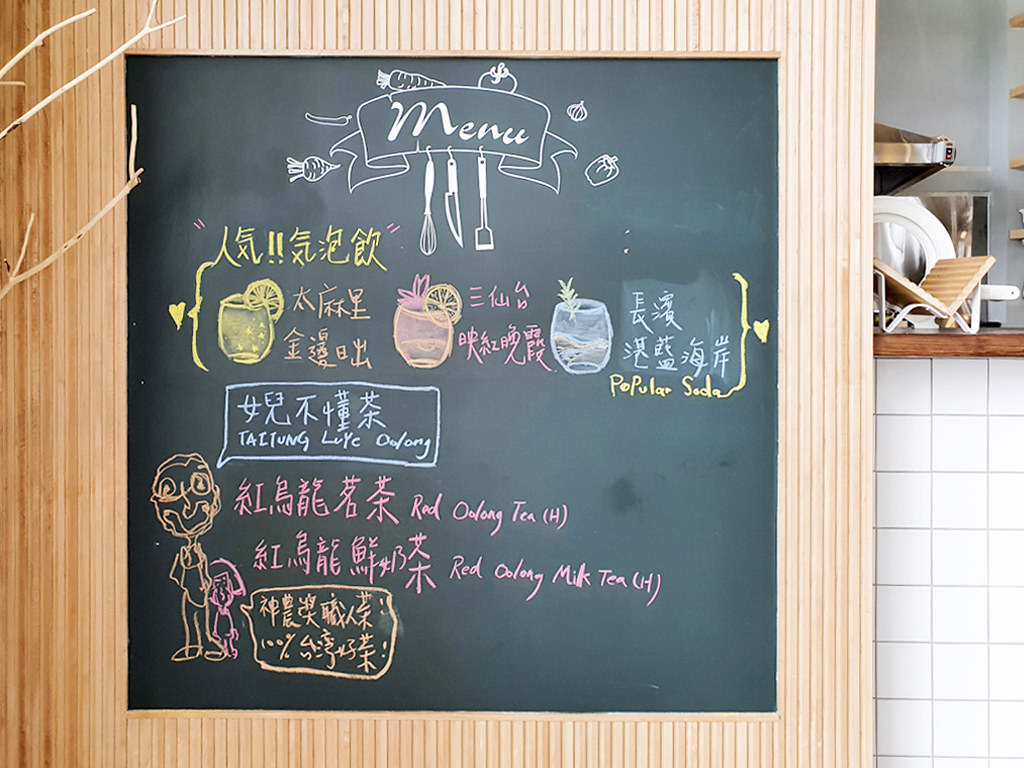 Menu
"人気!!気泡飲"
太麻里
金邊日出
三仙台
映紅晚霞
長濱
湛藍海岸
PoPular Soda
女兒不懂茶
TAITUNG LuYe Oolong
紅烏龍茗茶 Red Oolong Tea (H)
紅烏龍鮮奶茶 Red Oolong Milk Tea (H)
神農獎職人茶!
100% 台湾好茶!